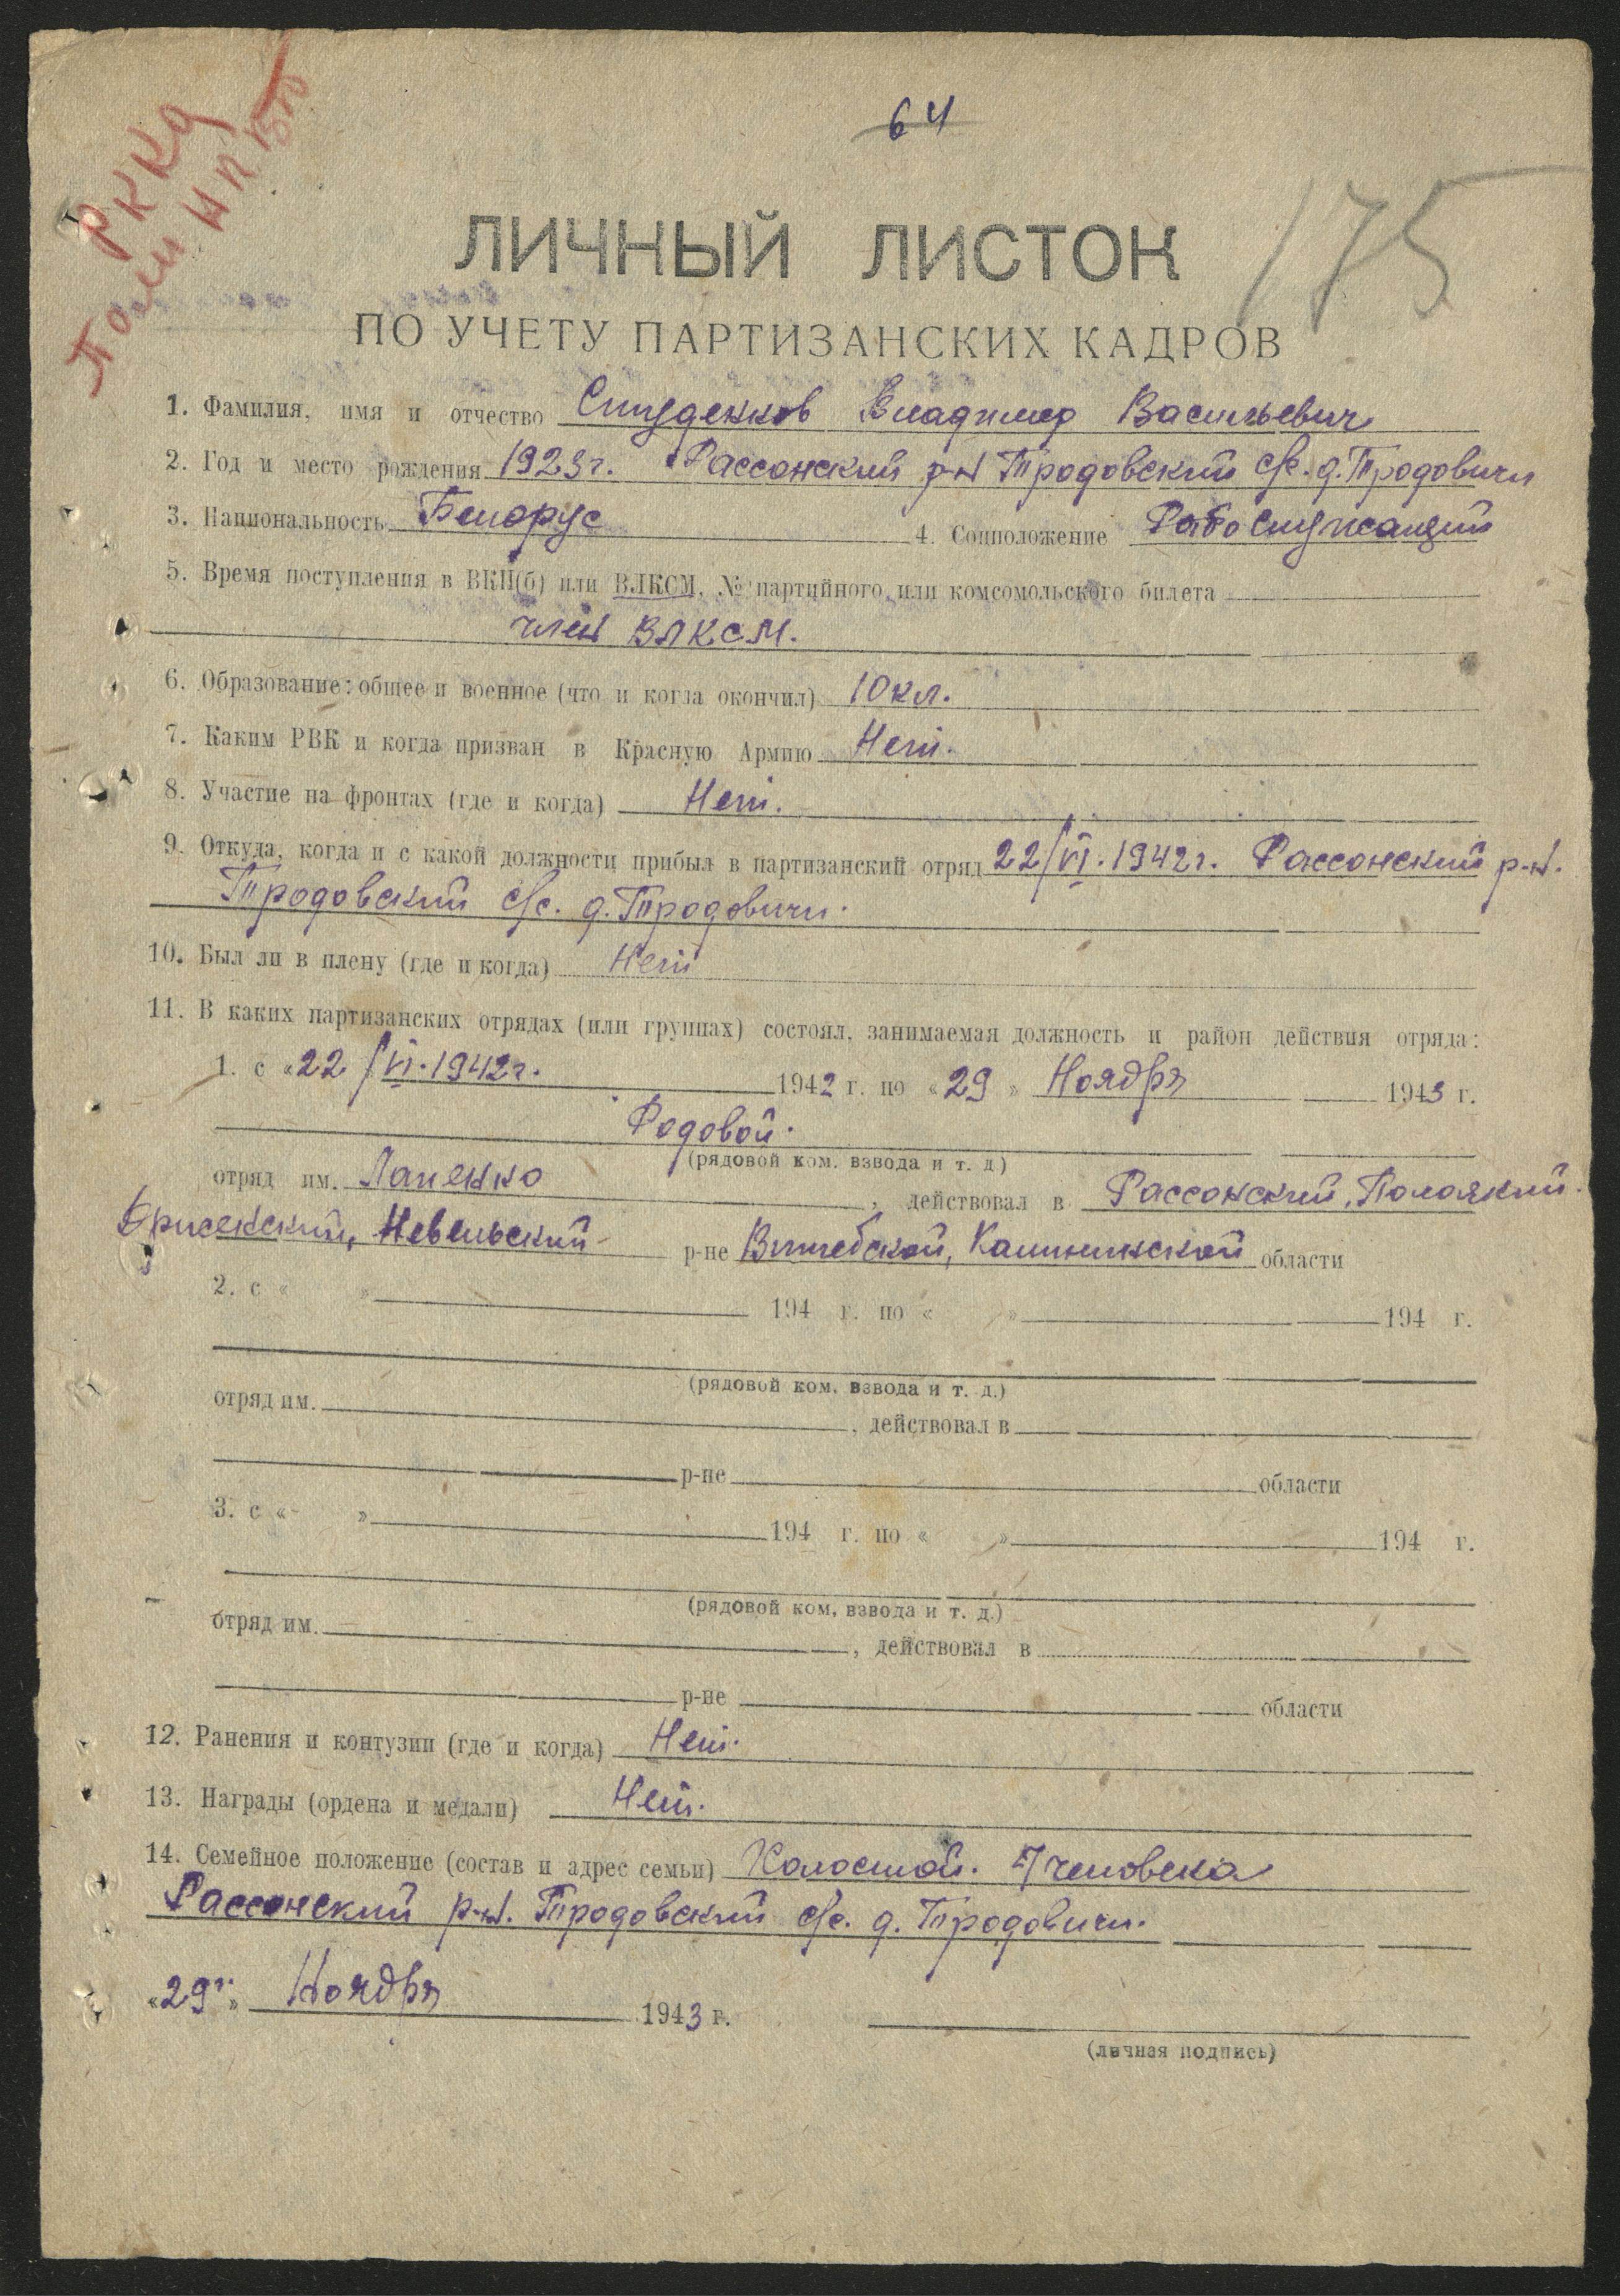 РККА
64
175
ЛИЧНЫЙ ЛИСТОК
ПО УЧЕТУ ПАРТИЗАНСКИХ КАДРОВ
1. Фамилия, имя и отчество Студенков Владимир Васильевич
2. Год и место рождения 1923 г. Рассонский р-н Тродовский с/с. д. Тродовичи
3. Национальность Белорус 4. Соцположение Рабо служащий
5. Время поступления в ВКП(б) или ВЛКСМ, № партийного или комсомольского билета
член ВЛКСМ.
6. Образование: общее и военное (что и когда окончил) 10 кл.
7. Каким РВК и когда призван в Красную Армию Нет.
8. Участие на фронтах (где и когда) Нет.
9. Откуда, когда и с какой должности прибыл в партизанский отряд 22/VI. 1942 г. Рассонский р-н.
Тродовский с/с. д. Тродовичи.
10. Был ли в плену (где и когда) Нет
11. В каких партизанских отрядах (или группах) состоял, занимаемая должность и район действия отряда:
1. с «22/VI. 1942 г. 1942 г. по «29» Ноября 1943 г.
Родовой.
(рядовой ком. взвода и т. д)
отряд им. Лапенко, действовал в Рассонский, Полоцкий.
Дрисенский, Невельский р-не Витебской, Калининской области
2. с « » 194 г. по « » 194 г.
(рядовой ком. взвода и т. д.)
отряд им. , действовал в
р-не области
3. с « » 194 г. по « » 194 г.
(рядовой ком, взвода и т. д.)
отряд им. , действовал в
р-не области
12. Ранения и контузии (где и когда) Нет.
13. Награды (ордена и медали) Нет.
14. Семейное положение (состав и адрес семьи) Холостой. 7 человека
Рассонский р-н. Тродовский с/с. д. Тродовичи.
«29» Ноября 1943 г.
(личная подпись)